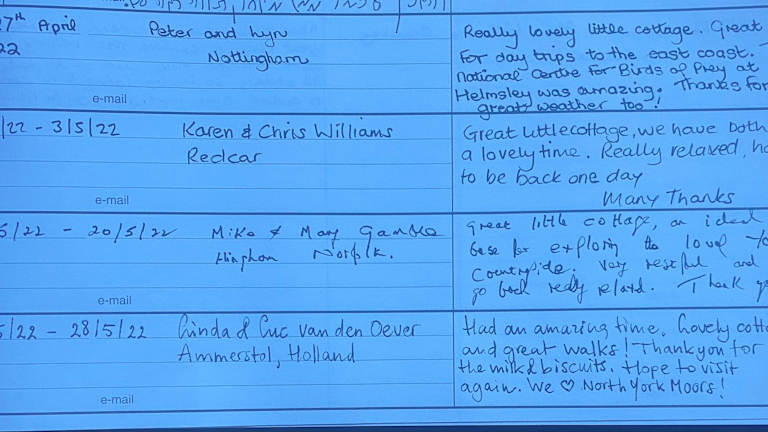 7th April Peter and Lyn Really lovely little cottage. Great
22 Nottingham For day trips to the east coast.
National Centre for Birds of Prey at
e-mail Helmsley was amazing. Thanks for
great weather too!
/22 - 3/5/22 Karen & Chris Williams Great little cottage, we have both
Redcar a lovely time. Really relaxed, ho
to be back one day
e-mail Many Thanks
5/22 - 20/5/22 Mike & Mary Great little cottage, an ideal
Hingham Norfolk. base for exploring the
countryside. Very restful and
e-mail go back really relaxed. Thank yo
5/22 - 28/5/22 Linda & Luc van den Oever Had an amazing time. Lovely cotta
Ammerstol, Holland and great walks! Thank you for
the milk & biscuits. Hope to visit
e-mail again. We ♡ North York Moors!